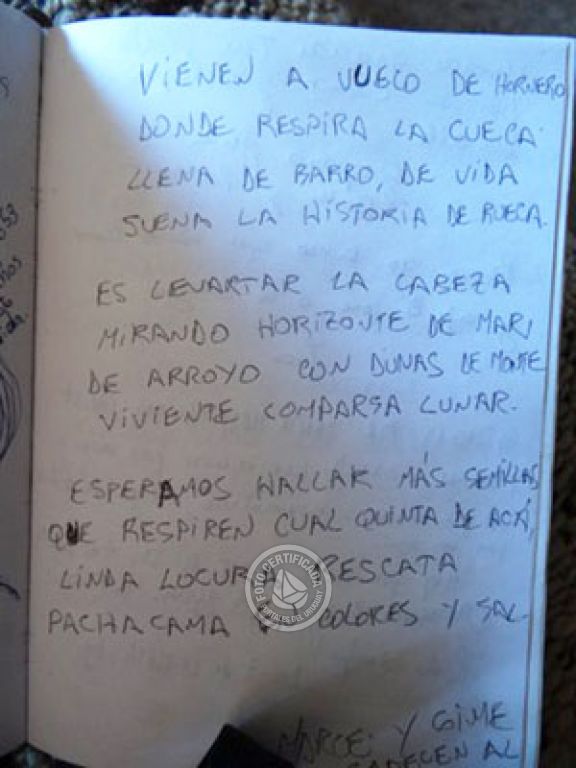 VIENEN A VUELO DE HORNERO
DONDE RESPIRA LA CUECA
LLENA DE BARRO, DE VIDA
SUENA LA HISTORIA DE RUECA.
ES LEVARTAR LA CABEZA
MIRANDO HORIZONTE DE MAR,
DE ARROYO CON DUNAS DE MONTE
VIVIENTE COMPARSA LUNAR.
ESPERAMOS HALLAR MÁS SEMILLAS
QUE RESPIREN CUAL QUINTA DE ACÁ,
LINDA LOCURA RESCATA
PACHACAMA COLORES Y SAL.
MARCE Y GIME
AL
FOTO CERTIFICADA
PORTALES DEL URUGUAY